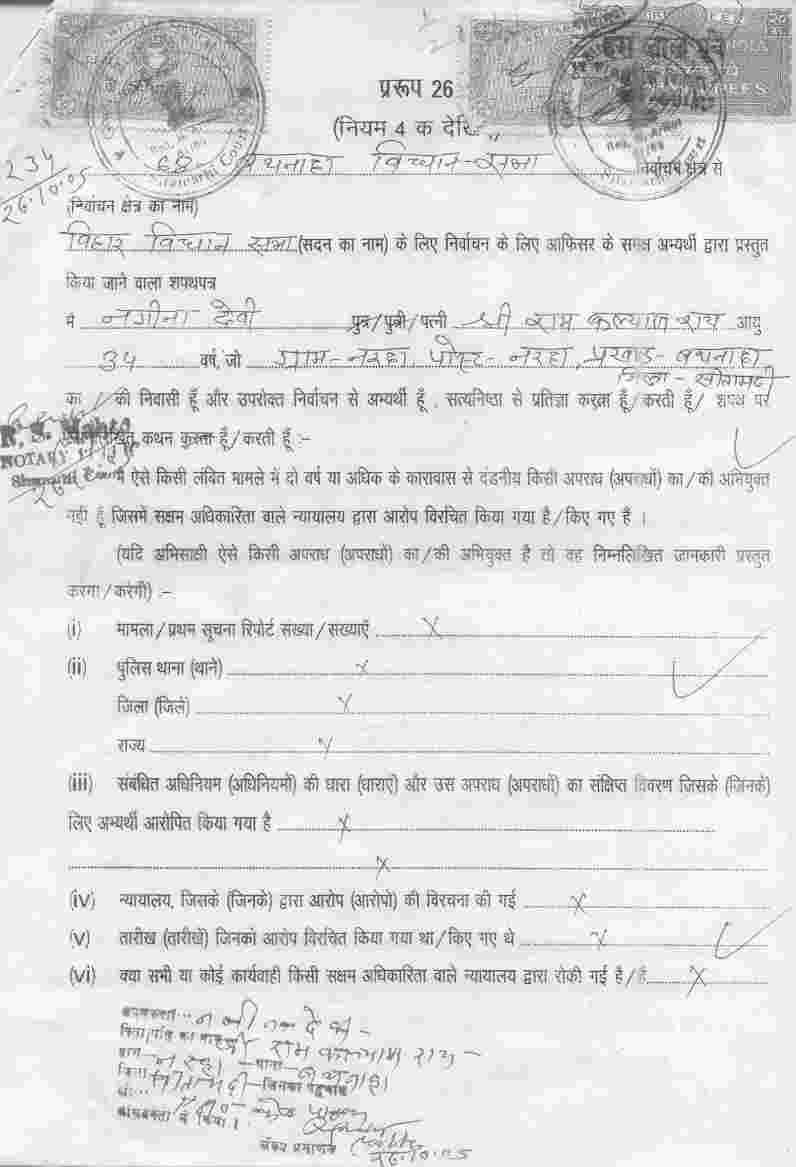 प्ररूप 26
(नियम 4 क देखि
68 बथनाहा विधान-सभा निर्वाचन क्षेत्र से
234
26.10.05
(निर्वाचन क्षेत्र का नाम)
बिहार विधान सभा (सदन का नाम) के लिए निर्वाचन के लिए आफिसर के समक्ष अभ्यर्थी द्वारा प्रस्तुत
किया जाने वाला शपथपत्र
मै नगीना देवी पुत्र/पुत्री/पत्नी श्री राम कल्याण राय आयु
34 वर्ष, जो ग्राम-नरहा, पोस्ट-नरहा, प्रखंड-बथनाहा
जिला-सीतामढ़ी
का / की निवासी हूँ और उपरोक्त निर्वाचन से अभ्यर्थी हूँ, सत्यनिष्ठा से प्रतिज्ञा करता हूँ/करती हूँ/ शपथ पर
कथन करता हूँ/करती हूँ :-
NOTARY
मै ऐसे किसी लंबित मामले में दो वर्ष या अधिक के कारावास से दंडनीय किसी अपराध (अपराधों) का/की अभियुक्त
नही हूँ जिसमें सक्षम अधिकारिता वाले न्यायालय द्वारा आरोप विरचित किया गया है/किए गए हैं ।
(यदि अभिसाक्षी ऐसे किसी अपराध (अपराधों) का/की अभियुक्त है तो वह निम्नलिखित जानकारी प्रस्तुत
करेगा/करेगी) :-
(i) मामला/प्रथम सूचना रिपोर्ट संख्या/संख्याएँ X
(ii) पुलिस थाना (थाने) X
जिला (जिले) X
राज्य X
(iii) संबंधित अधिनियम (अधिनियमों) की धारा (धाराएँ) और उस अपराध (अपराधों) का संक्षिप्त विवरण जिसके (जिनके)
लिए अभ्यर्थी आरोपित किया गया है X
X
(iv) न्यायालय, जिसके (जिनके) द्वारा आरोप (आरोपो) की विरचना की गई X
(v) तारीख (तारीखें) जिनको आरोप विरचित किया गया था/किए गए थे X
(vi) क्या सभी या कोई कार्यवाही किसी सक्षम अधिकारिता वाले न्यायालय द्वारा रोकी गई है/हैं X
नगीना देवी
राम कल्याण राय
ग्राम नरहा थाना बथनाहा
जिला सीतामढ़ी जिनका पहचान
में किया ।
शपथ प्रमाणक
26.10.05